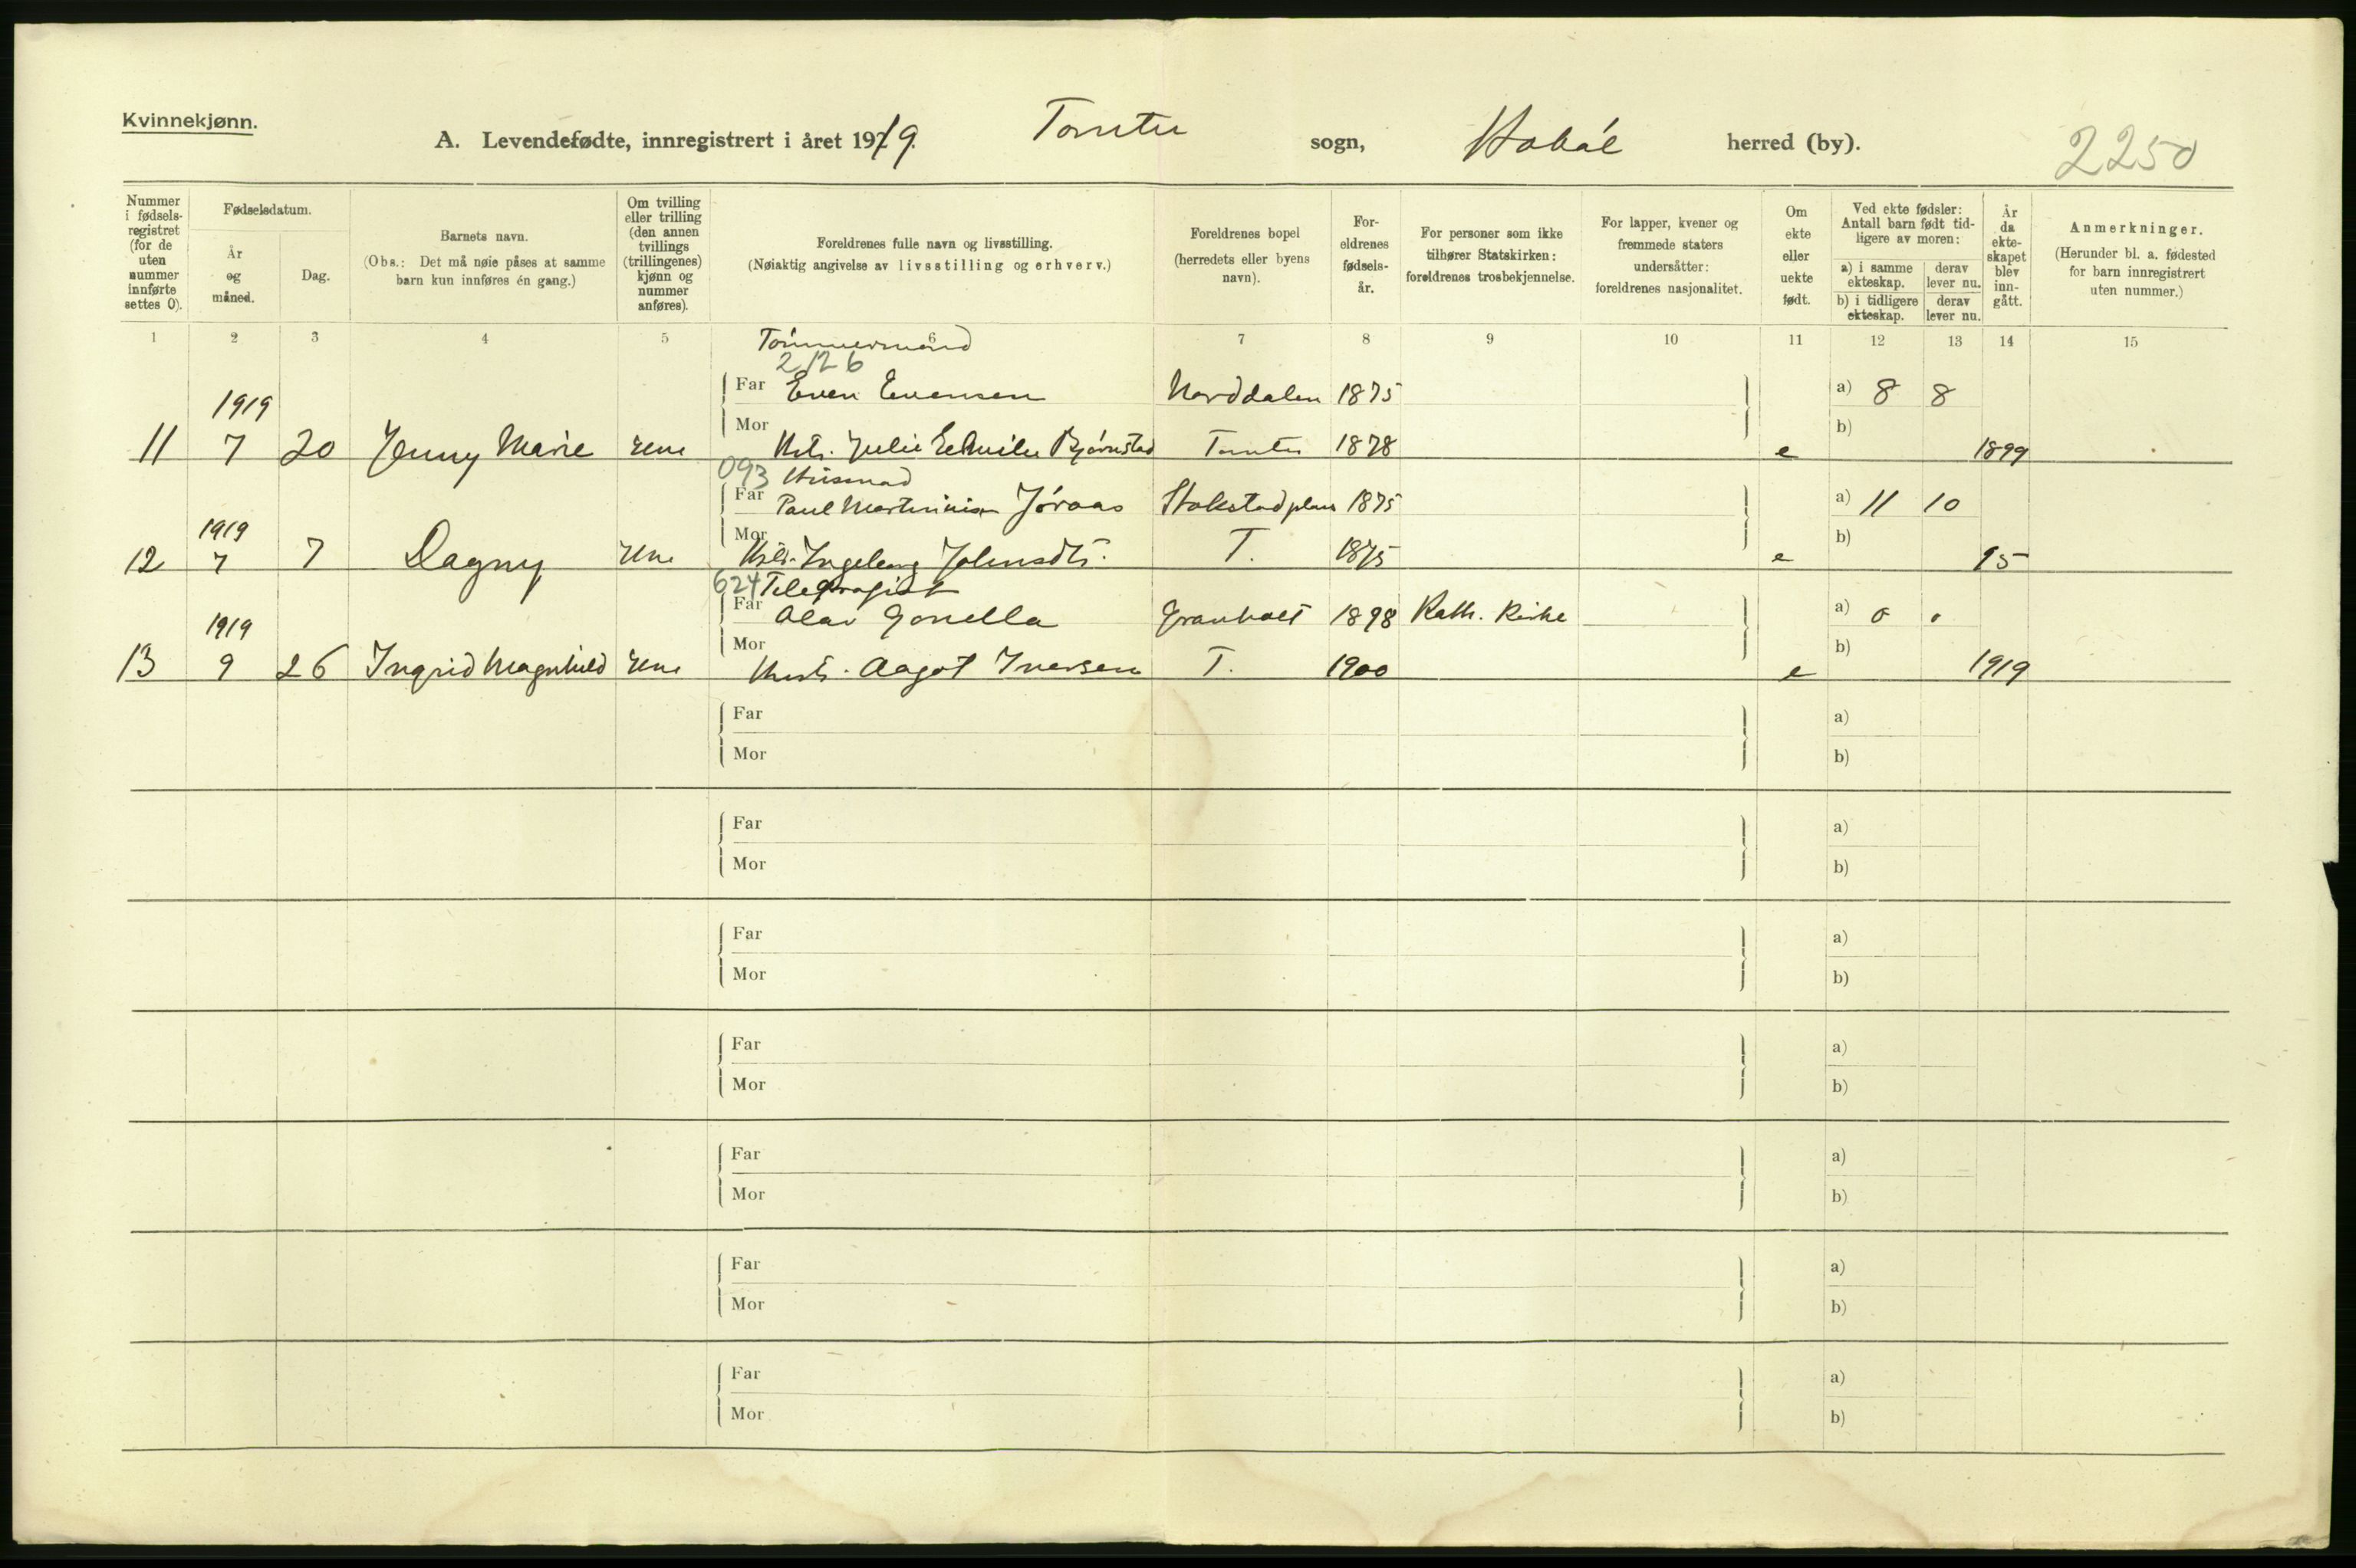 Kvinnekjønn.
A. Levendefødte, innregistrert i året 1919. Tomter sogn, Hobøl herred (by). 2250
Nummer i fødselsregistret (for de uten nummer innførte settes 0).
Fødselsdatum.
År og måned.
Dag.
Barnets navn.
(Obs.: Det må nøie påses at samme barn kun innføres én gang.)
Om tvilling eller trilling (den annen tvillings (trillingenes) kjønn og nummer anføres).
Foreldrenes fulle navn og livsstilling.
(Nøiaktig angivelse av livsstilling og erhverv.)
Foreldrenes bopel (herredets eller byens navn).
Foreldrenes fødselsår.
For personer som ikke tilhører Statskirken: foreldrenes trosbekjennelse.
For lapper, kvener og fremmede staters undersåtter: foreldrenes nasjonalitet.
Om ekte eller uekte født.
Ved ekte fødsler: Antall barn født tidligere av moren:
a) i samme ekteskap. derav lever nu.
b) i tidligere ekteskap. derav lever nu.
År da ekteskapet blev inngått.
Anmerkninger.
(Herunder bl. a. fødested for barn innregistrert uten nummer.)
1 2 3 4 5 6 7 8 9 10 11 12 13 14 15
Tømmermand
2126
Far Even Evensen Norddalen 1875 a) 8 8
1919
Mor b)
11 7 20 Jenny Marie Hstr. Julie Bjørnstad Tomter 1878 e 1899
093 Husmand
Far Paul Martinius Jøraas Stokstadplads 1875 a) 11 10
1919
Mor b)
12 7 7 Dagny Ingeborg Johnsdtr. T. 1875 e 95
624 Telegrafist
Far Olav Gonella Granholt 1898 Kath. Kirke a) 0 0
1919
Mor b)
13 9 26 Ingrid Magnhild Hustr. Aagot Iversen T. 1900 e 1919
Far a)
Mor b)
Far a)
Mor b)
Far a)
Mor b)
Far a)
Mor b)
Far a)
Mor b)
Far a)
Mor b)
Far a)
Mor b)